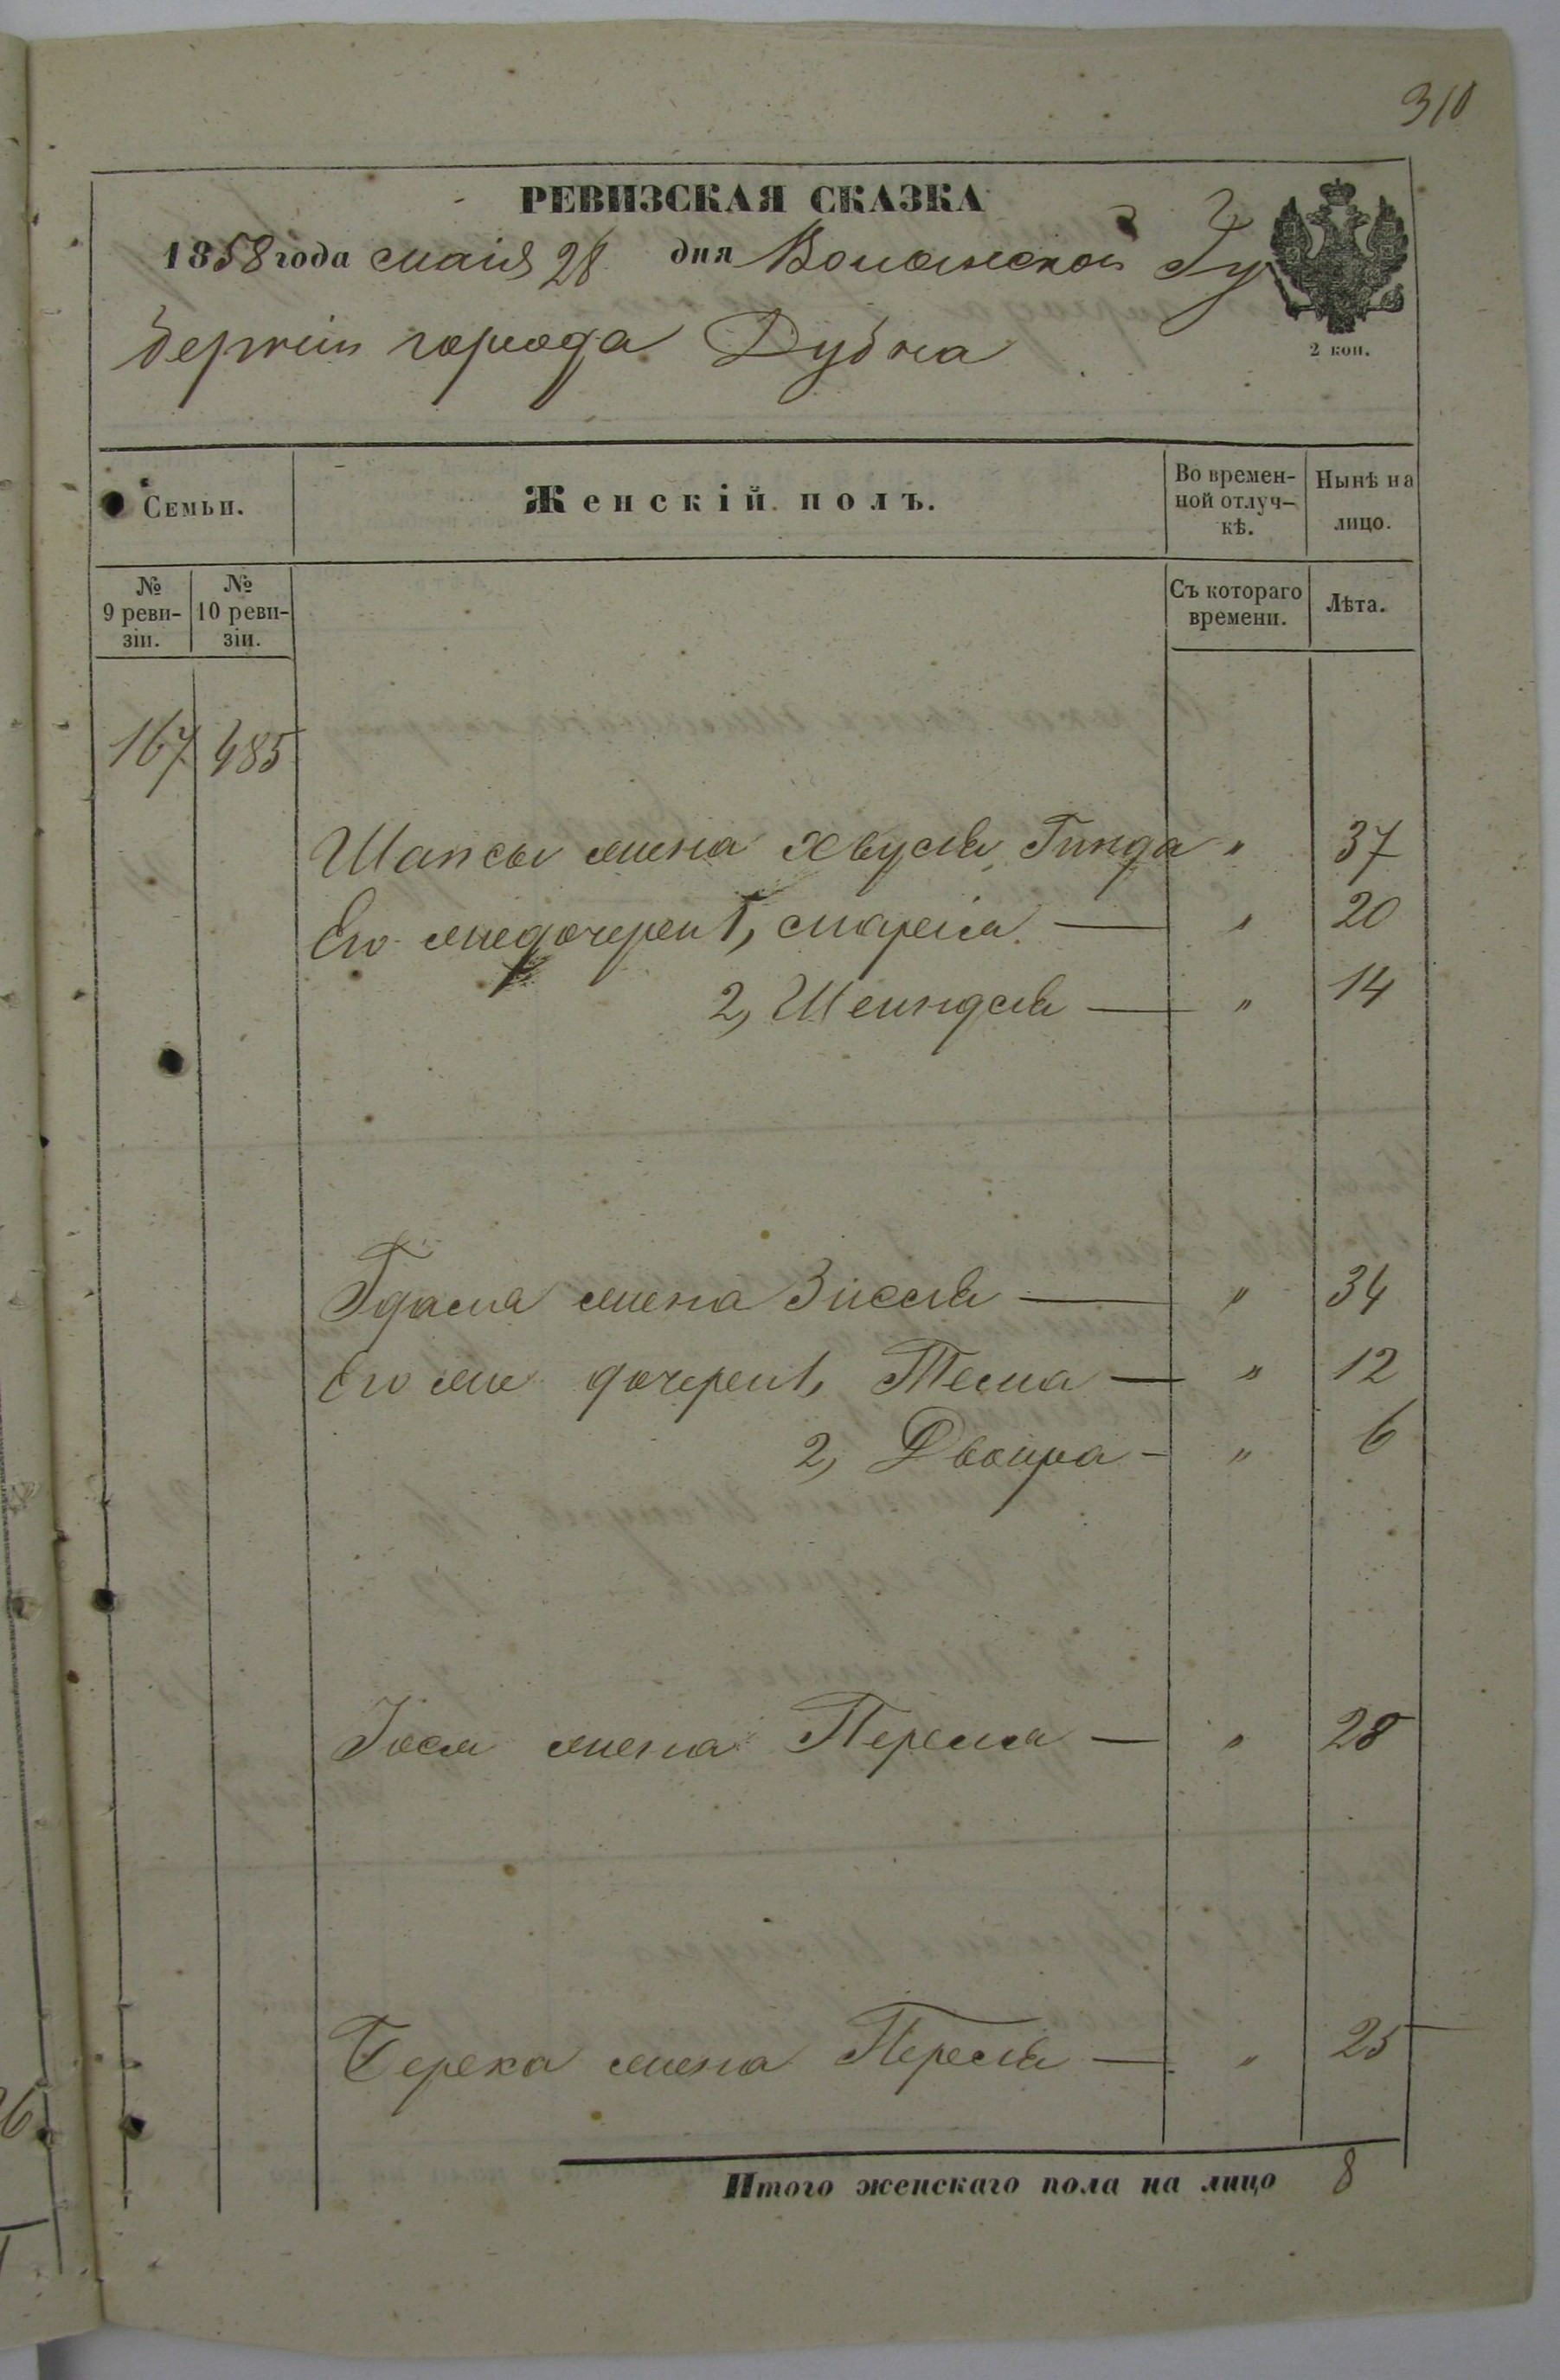 310
РЕВИЗСКАЯ СКАЗКА
1858 года маія 28 дня Волынской Гу
берніи города Дубна
2 коп.
Семьи.
Женскій полъ.
Во времен-
ной отлуч-
кѣ.
Нынѣ на
лицо.
№
9 реви-
зіи.
№
10 реви-
зіи.
Съ котораго
времени.
Лѣта.
167 485
Шапсы жена Гинда " 37
Его же дочери 1, — " 20
2, Шеиндля — " 14
жена Зисля — " 34
Его же дочери 1, Тема — " 12
2, Двойра - " 6
Іося жена Перля — " 28
Берка жена Песля — " 25
Итого женскаго пола на лицо 8